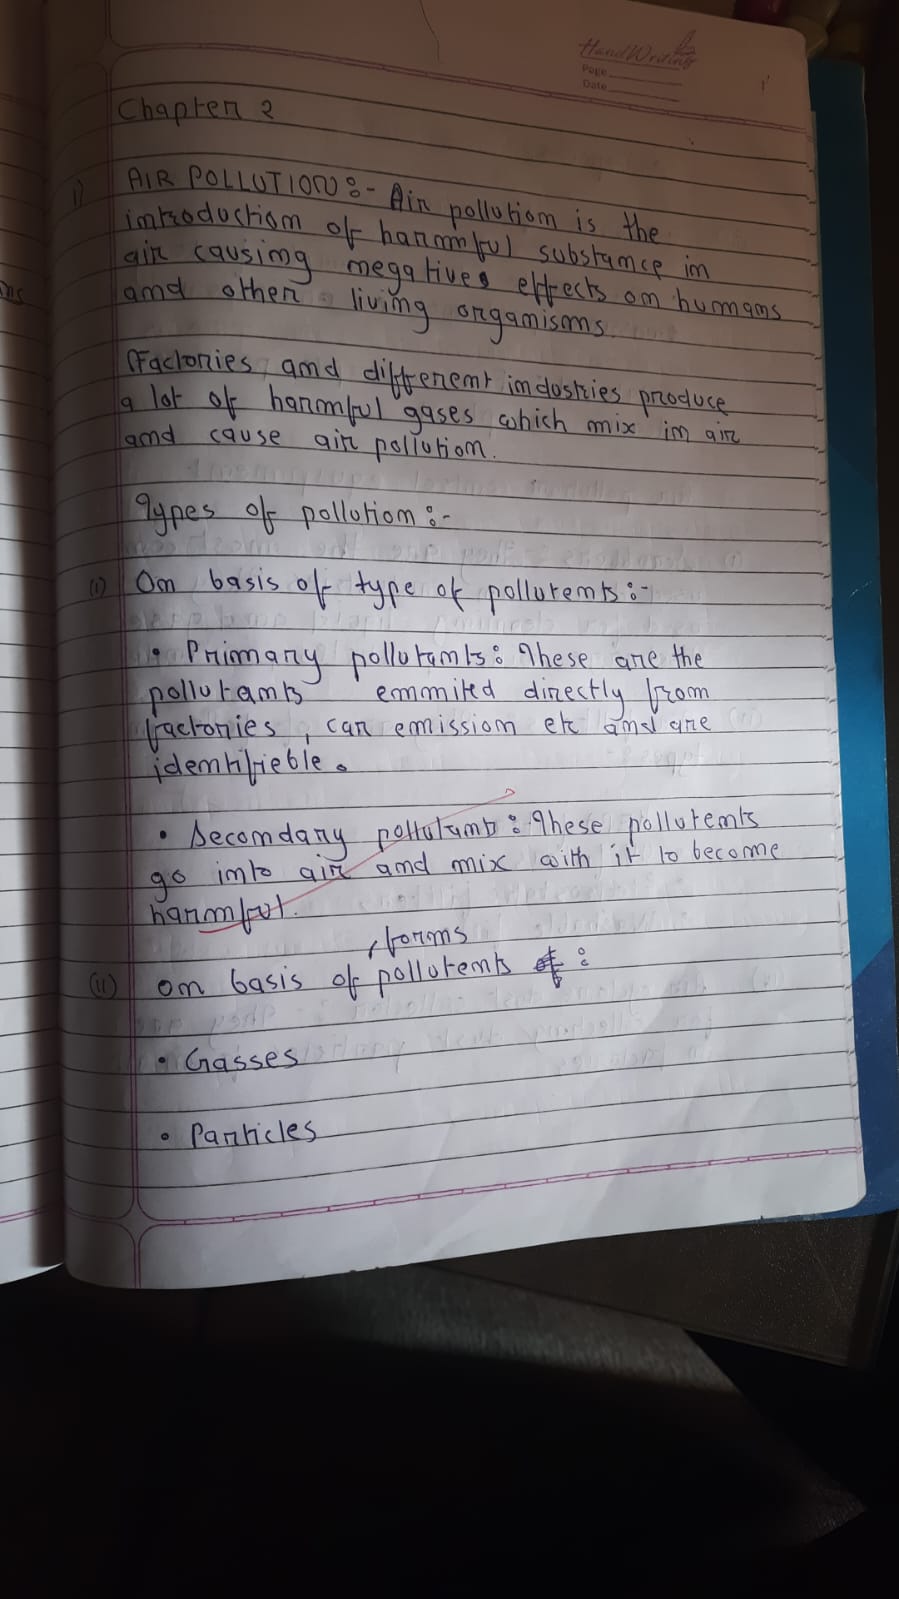 HandWriting
Page
Date
Chapter 2
1) AIR POLLUTION:- Air pollution is the
introduction of harmful substance in
air causing negatives effects on humans
and other living organisms.
Factories and different industries produce
a lot of harmful gases which mix in air
and cause air pollution.
Types of pollution:-
(i) On basis of type of pollutents:-
• Primary pollutants: These are the
pollutants emmited directly from
factories, car emission etc and are
identifieble.
• Secondary pollutant: These pollutents
go into air and mix with it to become
harmful.
, forms
(ii) on basis of pollutents :
• Gasses
• Particles